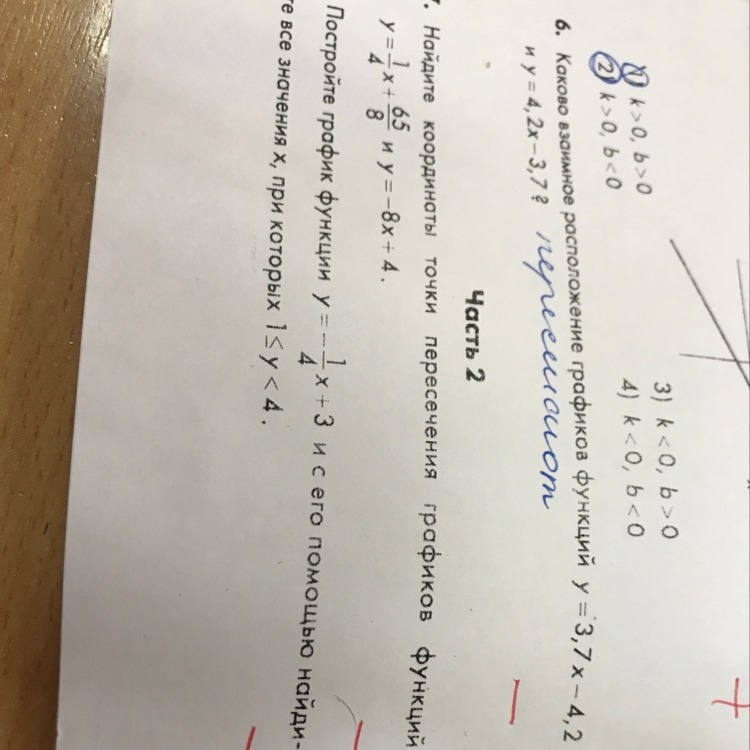 1) k > 0, b > 0
2) k > 0, b < 0
3) k < 0, b > 0
4) k < 0, b < 0
6. Каково взаимное расположение графиков функций y = 3,7x − 4,2
и y = 4,2x − 3,7? пересекают
Часть 2
7. Найдите координаты точки пересечения графиков функций
y = 1/4 x + 65/8 и y = −8x + 4.
Постройте график функции y = −1/4 x + 3 и с его помощью найди-
те все значения x, при которых 1 ≤ y < 4.